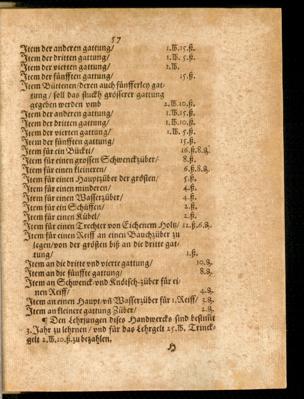 57
Item der anderen gattung/ 1.℔.15.ß.
Item der dritten gattung/ 1.℔. 5.ß.
Item der vierten gattung/ 1.℔.
Item der fünfften gattung/ 15.ß.
Item Büttenen/deren auch fünfferley gat-
tung/ soll das stuckh grösserer gattung
gegeben werden vmb 2.℔.10.ß.
Item der anderen gattung/ 1.℔.15.ß.
Item der dritten gattung/ 1.℔.10.ß.
Item der vierten gattung/ 1.℔. 5.ß.
Item der fünfften gattung/ 15.ß.
Item für ein Bückti/ 16.ß.8.₰.
Item für einen grossen Schwenckzüber/ 8.ß.
Item für einen kleineren/ 6.ß.8.₰.
Item für einen Hauptzüber der größten/ 5.ß.
Item für einen minderen/ 4.ß.
Item für einen Wasserzüber/ 4.ß.
Item für ein Schüffeti/ 2.ß.
Item für einen Kübel/ 2.ß.
Item für einen Trechter von Eichenem Holtz/ 12.ß.6.₰.
Item für einen Reiff an einen Bauchzüber zu
legen/von der größten biß an die dritte gat-
tung/ 1.ß.
Item an die dritte vnd vierte gattung/ 10.₰.
Item an die fünffte gattung/ 8.₰.
Item an Schwenck-vnd Knötsch-züber für ei-
nen Reiff/ 4.₰.
Item an einen Haupt/vñ Wasserzüber für 1.Reiff/ 3.₰.
Item an kleinere gattung Züber/ 2.₰.
¶ Den Lehrjungen dises Handwercks sind bestimt
3.Jahr zu lehrnen/ vnd für das Lehrgelt 25.℔. Trinck-
gelt 2.℔.10.ß.zu bezahlen.
H